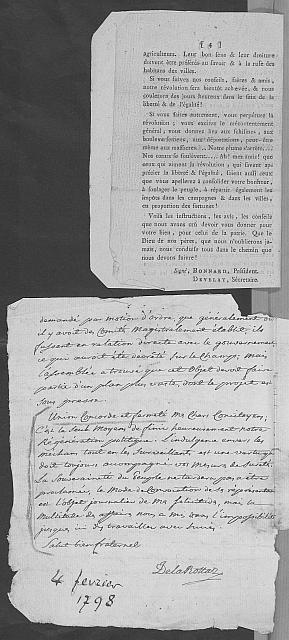 [ 4 ]
agriculteurs. Leur bon sens & leur droiture
doivent être préférés au savoir & à la ruse des
habitans des villes.
Si vous suivez nos conseils, freres & amis,
notre révolution sera bientôt achevée, & nous
coulerons des jours heureux dans le sein de la
liberté & de l'égalité!
Si vous faites autrement, vous perpétuez la
révolution; vous excitez le mécontentement
général; vous donnez lieu aux schismes, aux
bouleversemens, aux déportations, peut-être
même aux massacres!... Notre plume s'arrête....
Nos cœurs se soulevent.... Ah! mes amis! que
ceux qui aiment la révolution, qui savent ap-
précier la liberté & l'égalité, soient aussi ceux
que vous appellerez à consolider votre bonheur,
à soulager le peuple, à répartir également les
impôts dans les campagnes & dans les villes,
en proportion des fortunes!
Voilà les instructions, les avis, les conseils
que nous avons cru devoir vous donner pour
votre bien, pour celui de la patrie. Que le
Dieu de nos peres, que nous n'oublierons ja-
mais, nous conduise tous dans le chemin que
nous devons suivre!
Signé, BONNARD, Président.
DEVELAY, Sécretaire.
demandé par motion d'ordre, que généralement où
il y avoit des Comités Magistralement établis, ils
fussent en relation directe avec le gouvernement
ce qui auroit été décrété sur le Champ, mais
l'assemblée a trouvé que cet Objet devoit faire
partie d'un plan plus vaste, dont le projet est
sous presse.
Union Concorde et fermeté Mes Chers Concitoyens,
C'est le seul Moyen de finir heureusement notre
Régénération politique. L'indulgence envers les
méchans tout en les Surveillants est une vertu qui
doit toujours accompagner vos Mesures de Sureté.
La Souveraineté du Peuple
proclamée, le Mode de Convocation de ses représentans
est l'objet journalier de Ma
Multitude des affaires nous a mis dans l'impossibilité
jusques ici d'y travailler avec
Salut bien fraternel
DelaRottaz
4 fevrier
1798